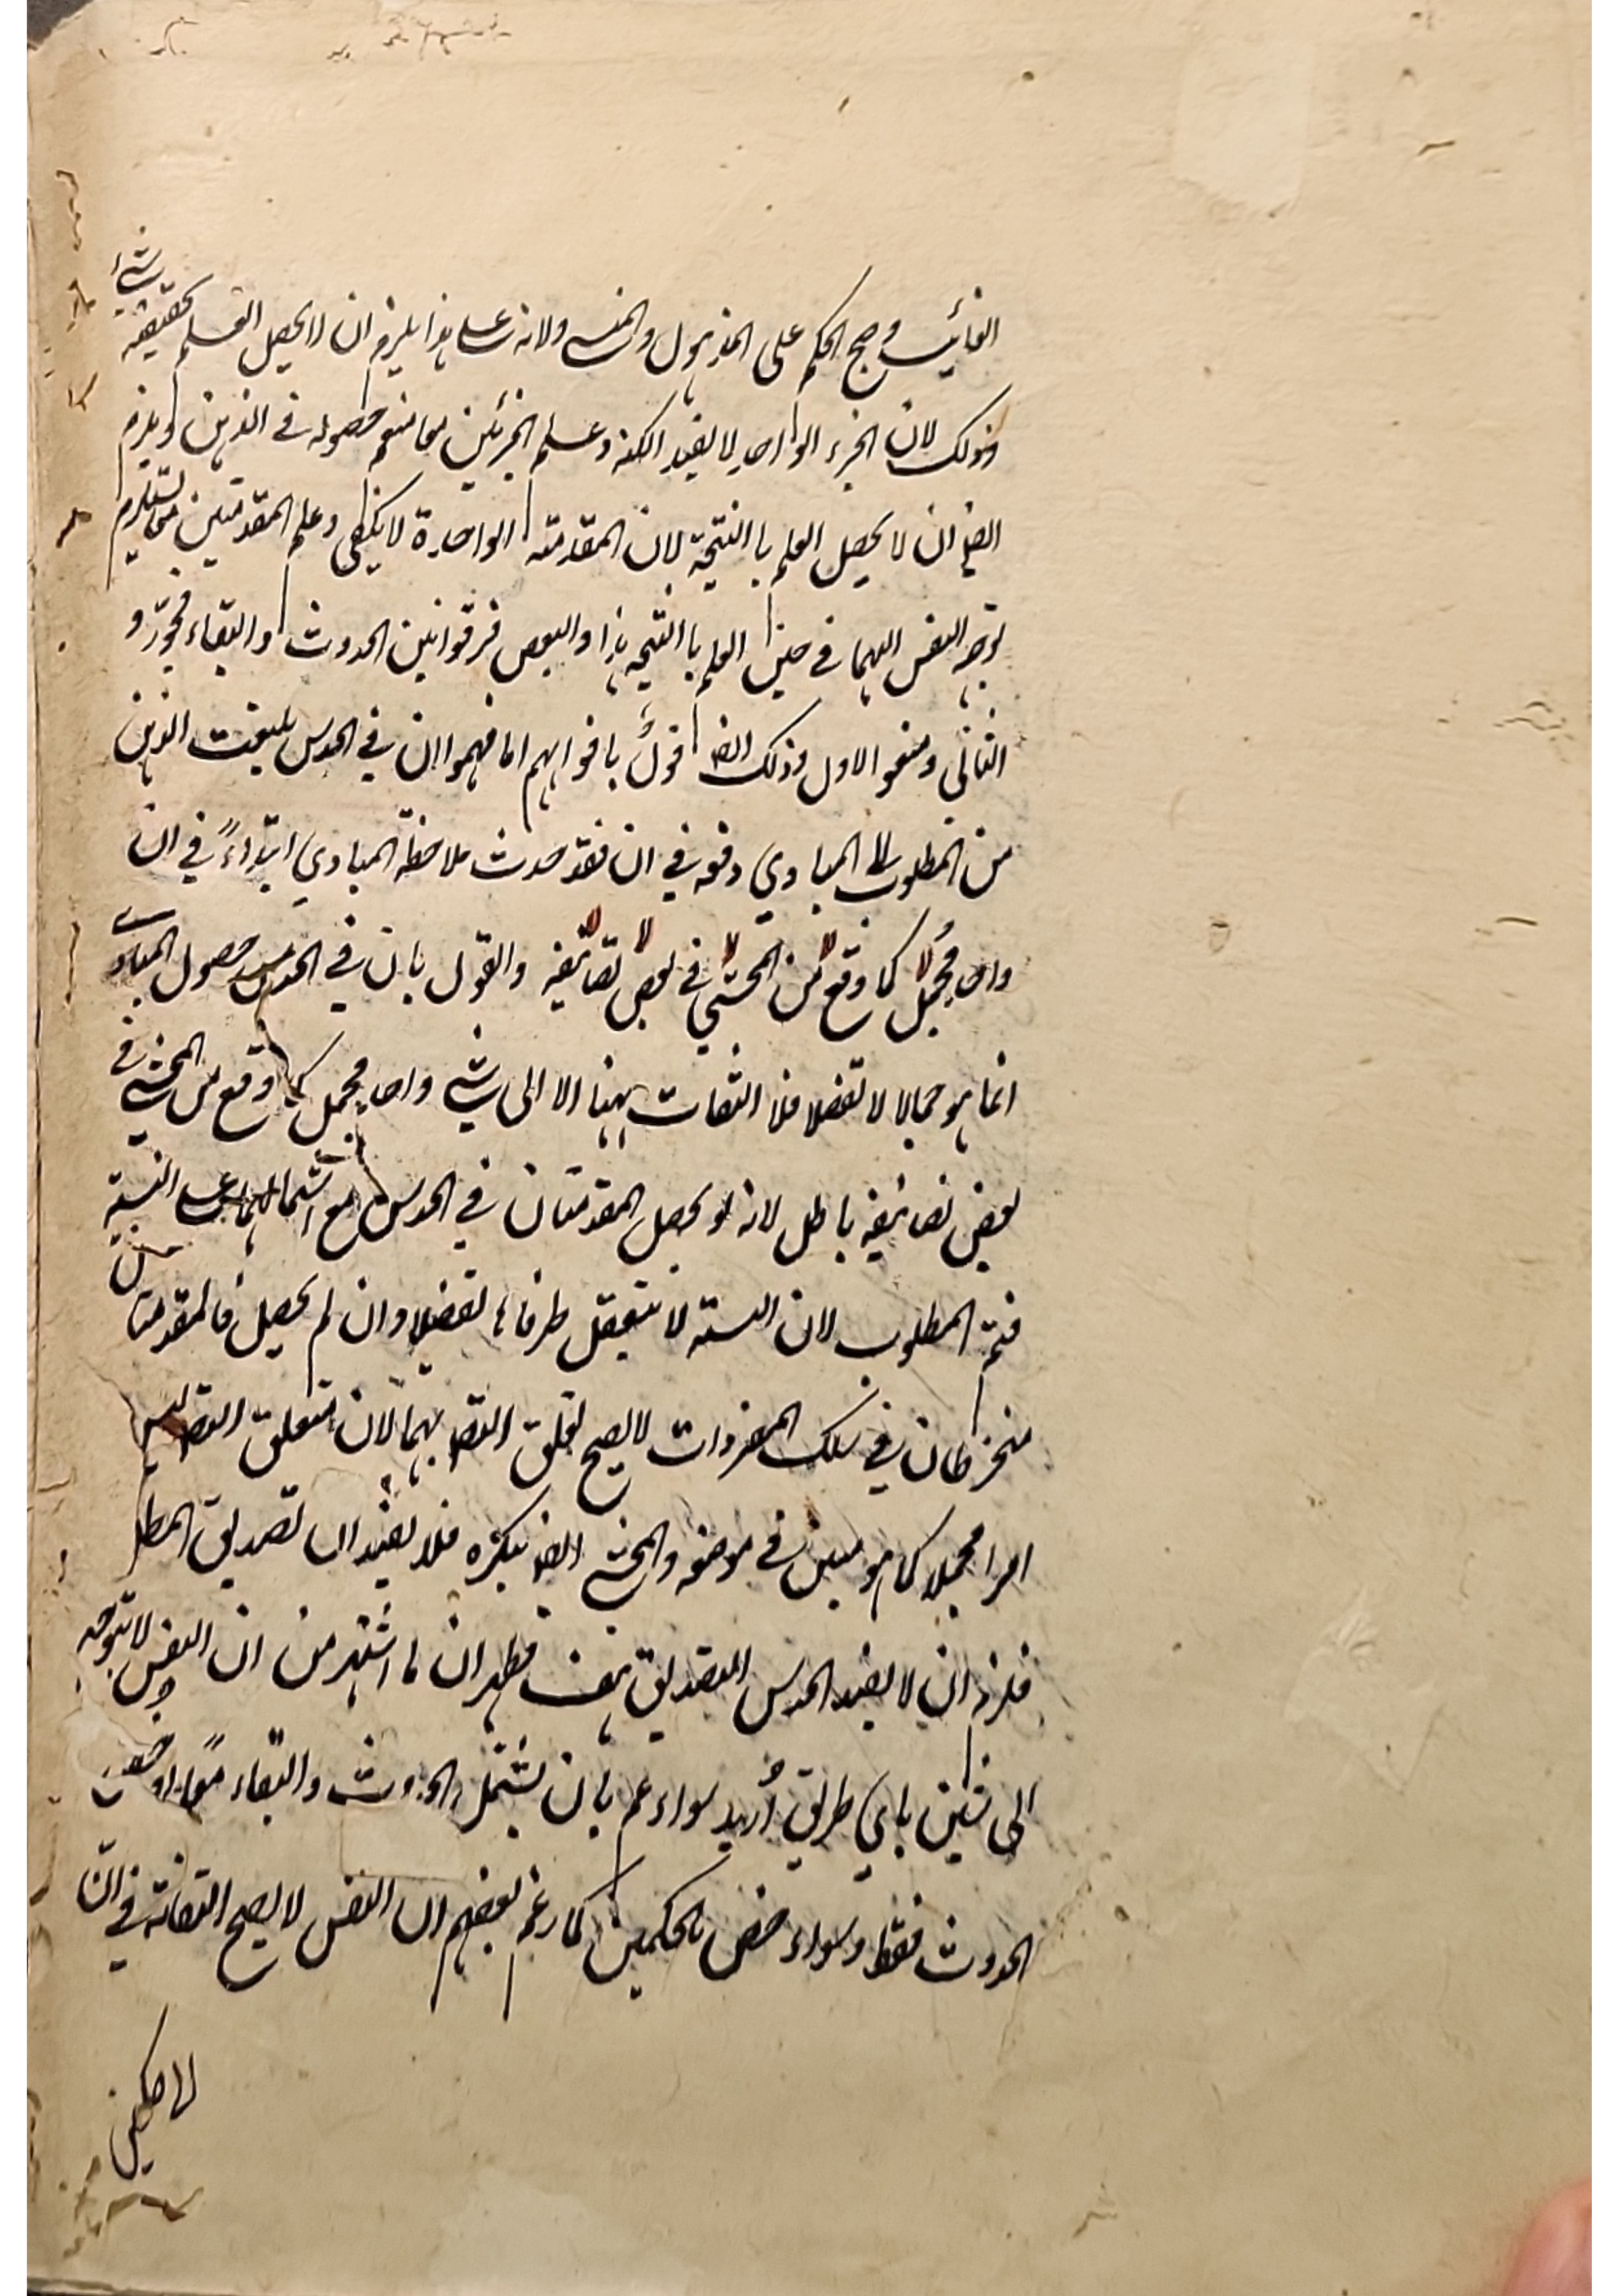 الغائب وصح الحكم على المذهول والمنسي ولانه على هذا يلزم ان لا يحصل العلم بحقيقة شئ
وذلك لان الجزء الواحد لا يفيد الكنه وعلم الجزئين معا منع حصوله في الذهن ويلزم
ايضا ان لا يحصل العلم با النتيجة لان المقدمته الواحدة لا يكفي وعلم المقدمتين معا يستلزم
توجه النفس اليهما في حين العلم با النتيجه هذا والبعض فرقوا بين الحدوث والبقاء فجوّزو
الثاني ومنعو الاول وذلك ايضا قول بافواههم اما فهموا ان في الحدس يلتفت الذهن
من المطلوب الى المبادي دفعه في ان فقد حدث ملاحظة المبادي ابتداءً في ان
واحد مجمل كما وقع من المحشي في بعض تصانيفه والقول بان في الحدس حصول المبادي
انما هو اجمالا لا تفصيلا فلا التفات ههنا الا الى شئ واحد مجمل كما وقع من المحشي في
بعض تصانيفه باطل لانه لو يحصل المقدمتان في الحدس مع اشتمالهما على النسبة
فتم المطلوب لان النسبته لا يتعقل طرفاها تفصيلا وان لم يحصل فالمقدمتان
منخرطان في سلك المفردات لا يصح تعلق التصد بهما لان متعلق التصد ليس
امرا مجملا كما هو مبين في موضعه والمحشي ايضا ينكره فلا يفيد ان تصديق المطل
فلزم ان لا يفيد الحدس التصديق هف فظهر ان ما اشتهر من ان النفس لا تتوجه
الى شيئين باي طريق أريد سواء عم بان يشتمل الحدوث والبقاء معًا او خص
الحدوث فقط وسواء خص بالحكمين كما زعم بعضهم ان النفس لا يصح التفاته في ان
الا حكمين